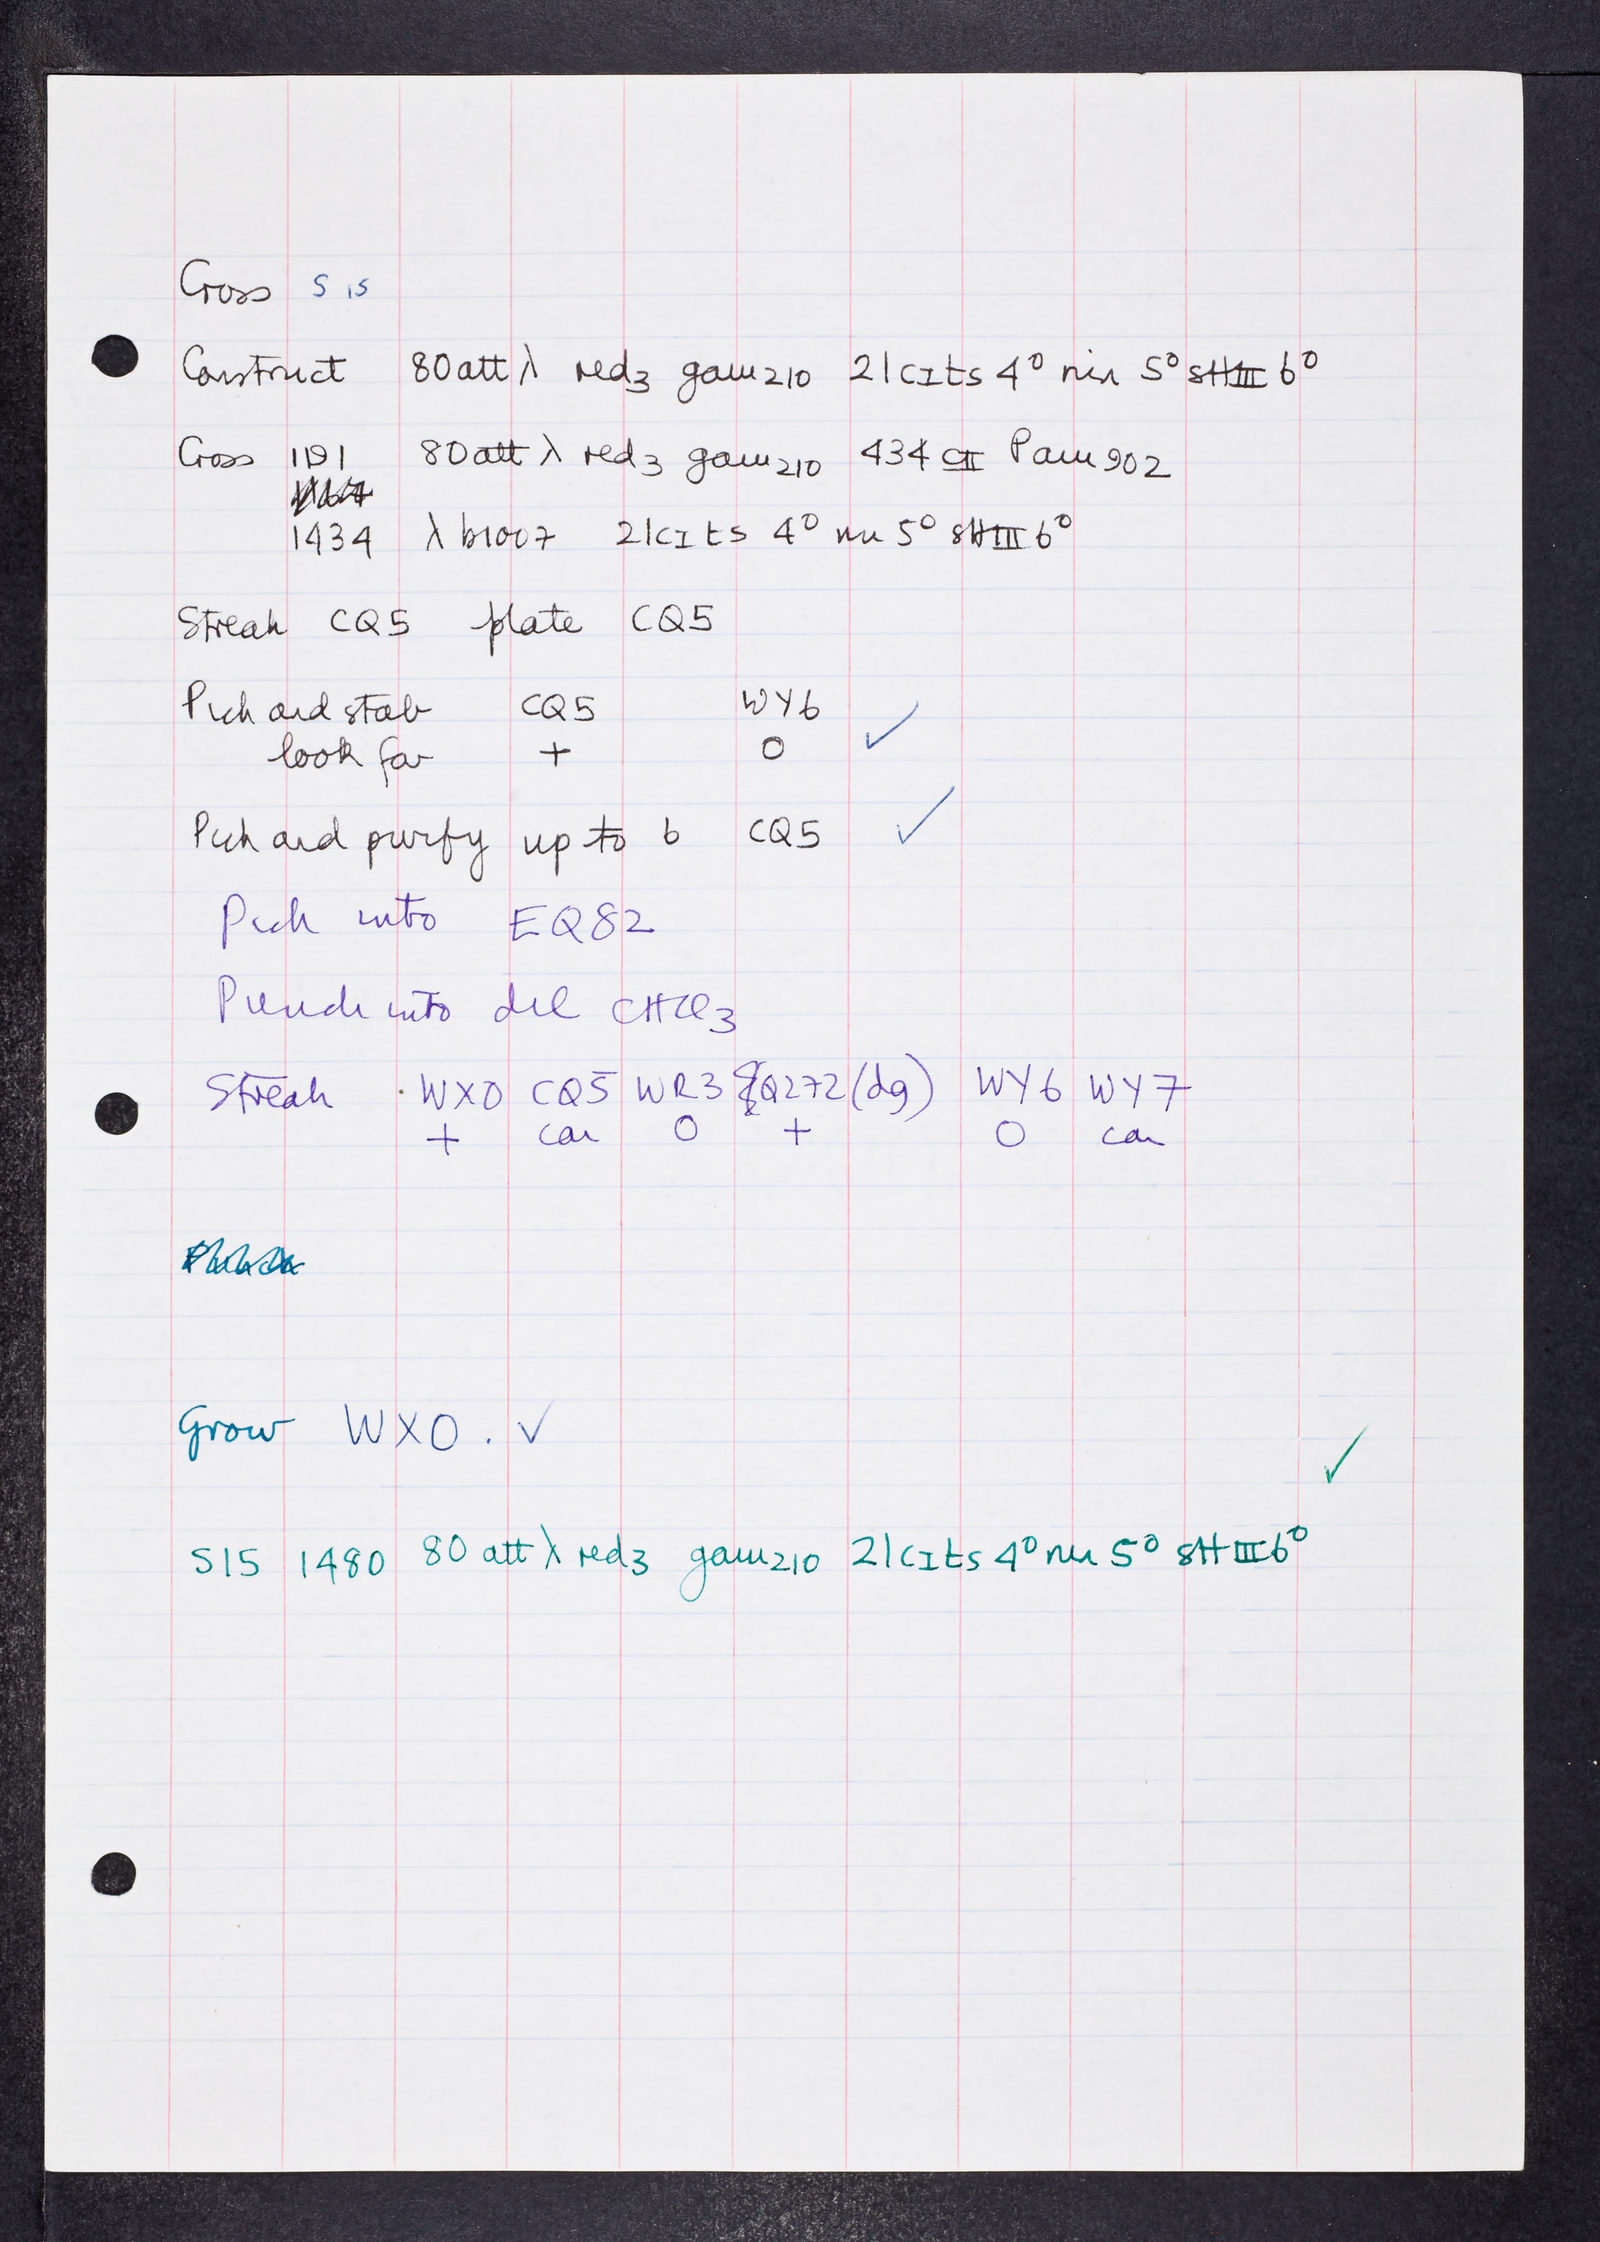 Cross S 15
Construct 80 att λ red3 gam210 21cIts 4° nin 5° sHIII 6°
Cross 1191 80 att λ red3 gam210 434 cI Pam902
1434 λ b1007 21cIts 4° nin 5° sHIII 6°
Streak CQ5 plate CQ5
Pick and stab CQ5 WY6 ✓
look for + 0
Pick and purify up to 6 CQ5 ✓
Pick into EQ82
Plunde into dil CHCl3
Streak WX0 CQ5 WR3 EQ272 (dg) WY6 WY7
+ car 0 + 0 car
Grow WX0 . ✓
✓
S15 1480 80 att λ red3 gam210 21cIts 4° nin 5° sHIII 6°